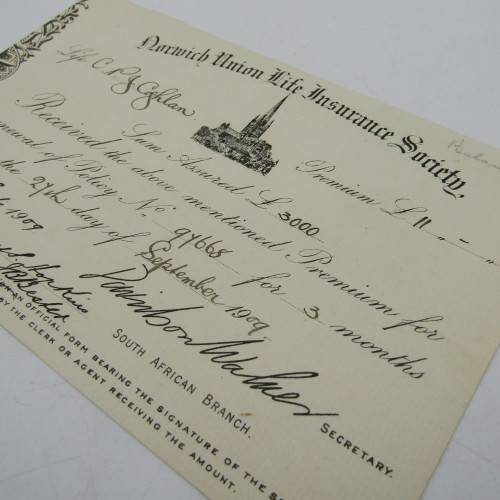 Norwich Union Life Insurance Society,
Life C. P. J. Coghlan
Sum Assured £ 3000 Premium £ 11 " - "
Received the above mentioned Premium for
newal of Policy No 97668 for 3 months
the 27th day of September 1909.
1909
Davidson Walker
SECRETARY.
SOUTH AFRICAN BRANCH.
AN OFFICIAL FORM BEARING THE SIGNATURE OF THE S
BY THE CLERK OR AGENT RECEIVING THE AMOUNT.